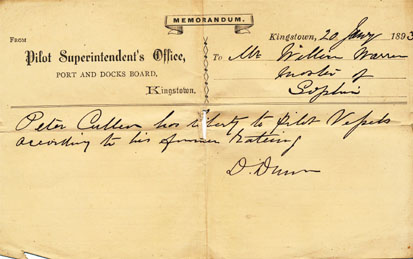 MEMORANDUM.
FROM
Pilot Superintendent's Office,
PORT AND DOCKS BOARD,
Kingstown.
Kingstown, 20 Jany 1893
To Mr William Warren
Master of
Sophia
Peter Cullen has liberty to Pilot Vessels
according to his former Rateing
D. Dunn